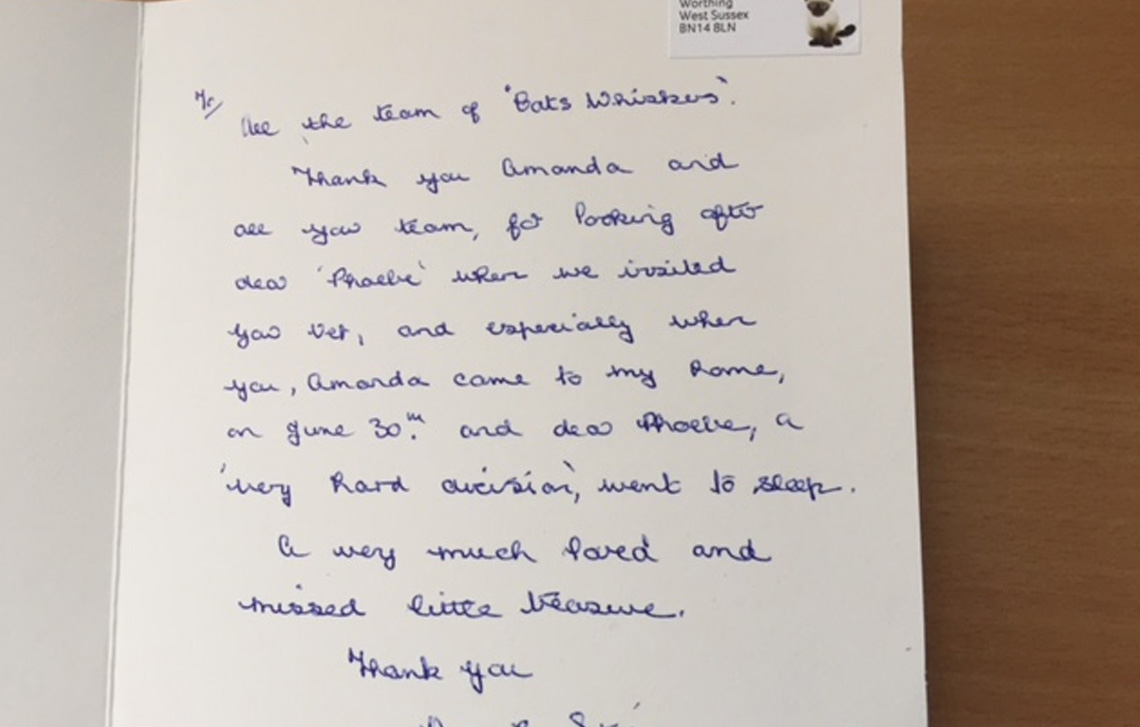 Worthing
West Sussex
BN14 8LN
To/
All the team of 'Cats Whiskers'.
Thank you Amanda and
all your team, for looking after
dear 'Phoebe' when we visited
your vet, and especially when
you, Amanda came to my home,
on June 30th. and dear Phoebe, a
'very hard decision', went to sleep.
A very much loved and
missed little treasure.
Thank you